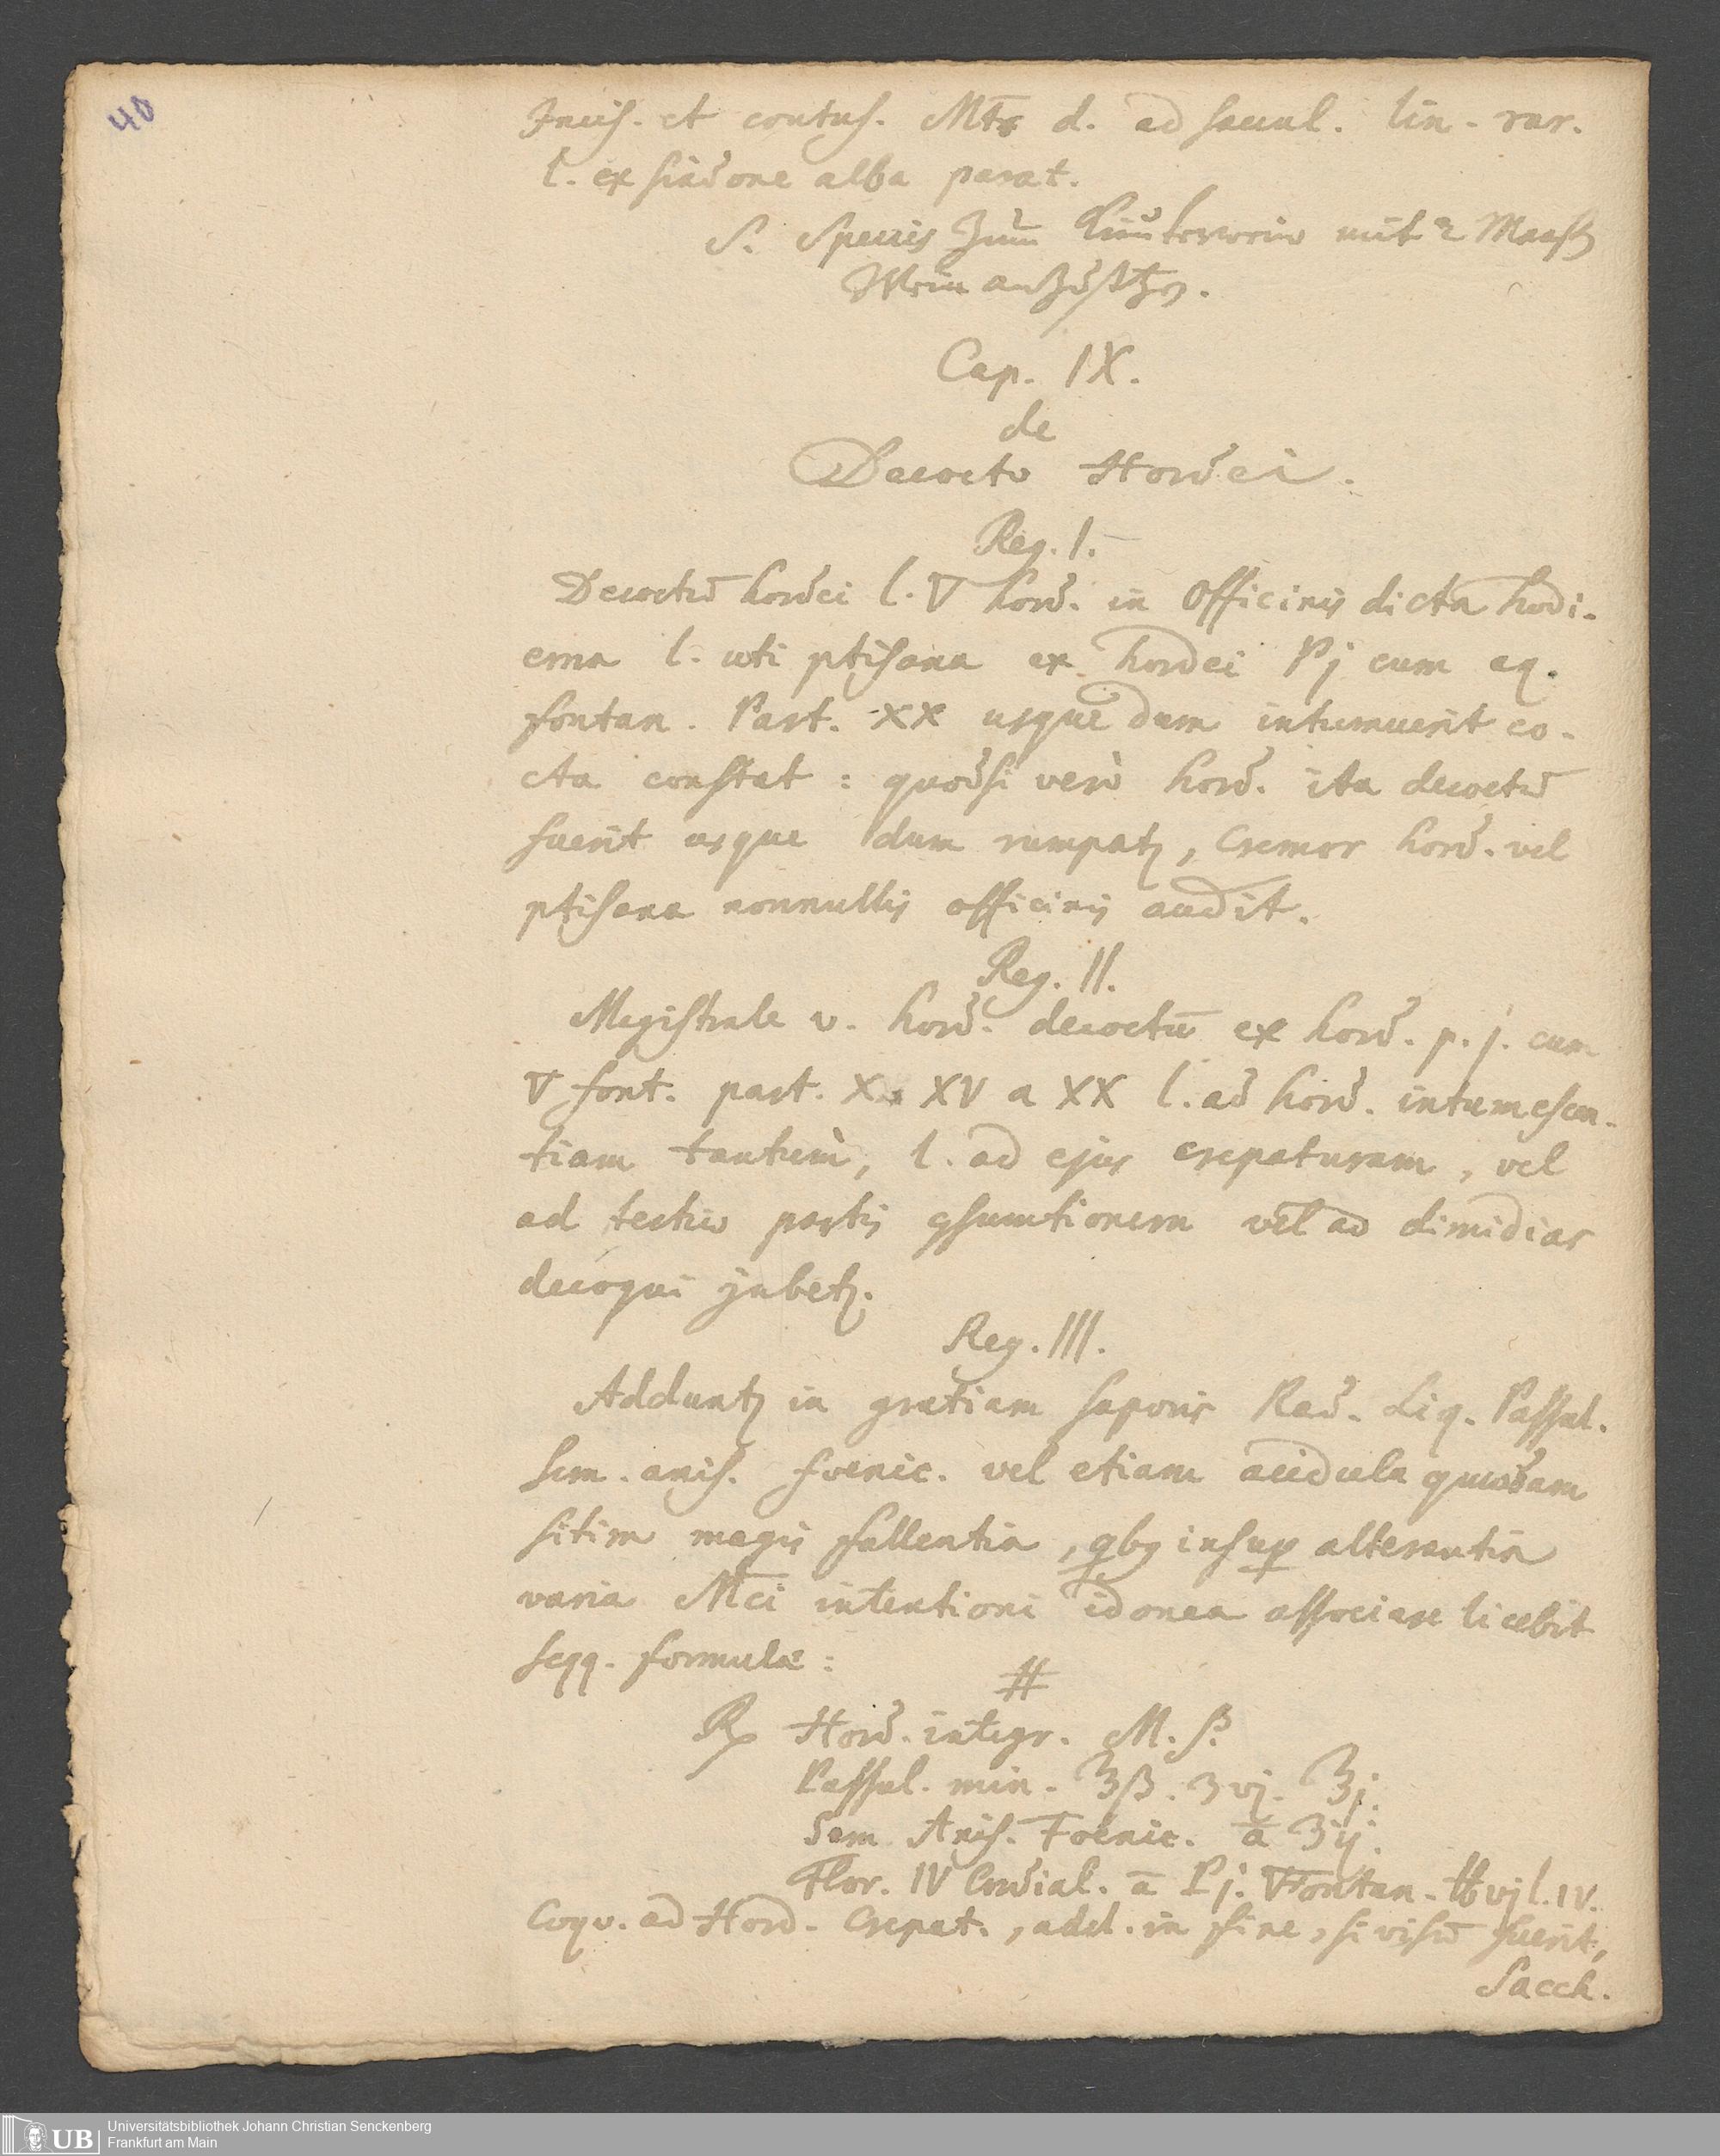 40
Incis. et contus. Mtr d. ad saccul. lin. rar.
l. ex sindone alba parat.
S. Species zum Kräuterwein mit 2 Maaß
Wein anzusetzen.
Cap. IX.
de
Decocto Hordei.
Reg. I.
Decoctū hordei l. ▽ hord. in Officinis dicta hodi-
erna l. uti ptisana ex hordei Pj cum aq.
fontan. Part. XX usque dum intumuerit co-
cta constat: quodsi verò hord. ita decoctū
fuerit usque dum rumpatʒ, Cremor hord. vel
ptisana nonnullis officinis audit.
Reg. II.
Magistrale v. hord. decoctū ex hord. p. j. cum
▽ font. part. X. XV a XX l. ad hord. intumescen-
tiam tantum, l. ad ejus crepaturam, vel
ad tertiæ partis ꝯsumtionem vel ad dimidias
decoqui jubetʒ.
Reg. III.
Adduntʒ in gratiam saporis Rad. Liq. Passul.
sem. anis. foenic. vel etiam acidula quædam
sitim magis fallentia, qbꝫ insuꝑ alterantia
varia Mci intentioni idonea associare licebit
seqq. formulæ:
#
℞ Hord. integr. M. ß.
Passul. min. ℥ß. ʒvj. ℥j.
Sem Anis. Foenic. ā ʒij.
Flor. IV Cordial. ā Pj. ▽ Fontan. ℔vj l. IV.
Coqv. ad Hord. Crepat., add. in fine, si visū fuerit,
Sacch.
UB
Universitätsbibliothek Johann Christian Senckenberg
Frankfurt am Main